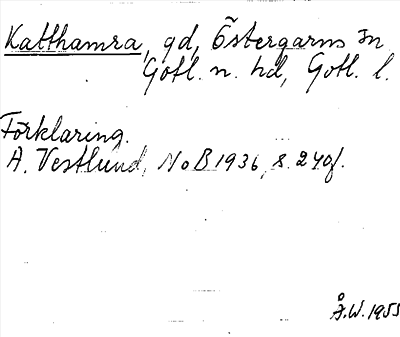 Katthamra, gd, Östergarns sn
Gotl. n. hd, Gotl. l.
Förklaring.
A. Vestlund, NoB 1936, s. 240f.
Å.W. 1955